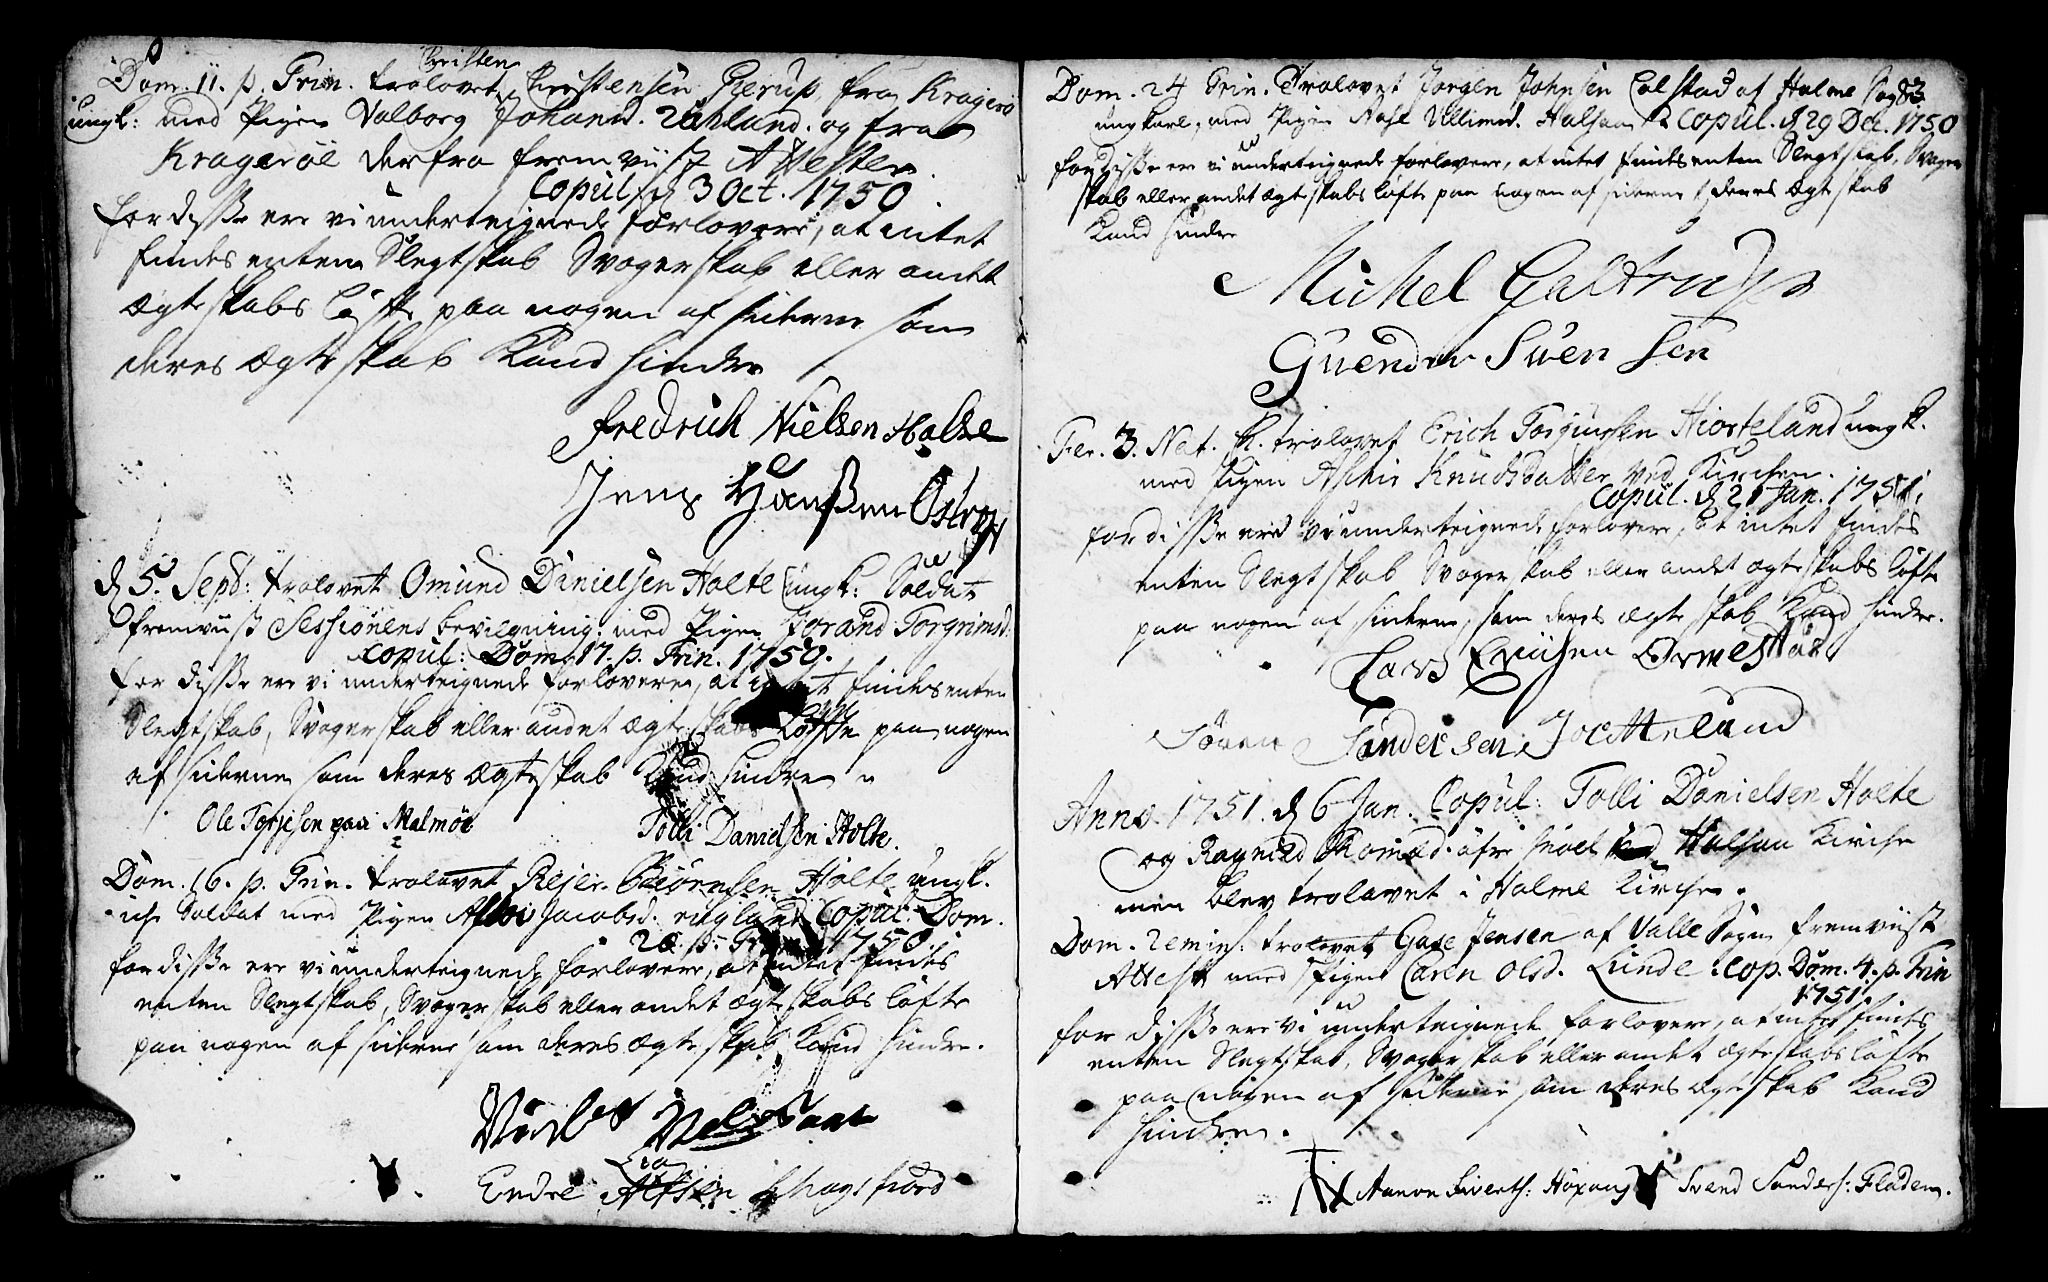 Dom. 11. p. Trin. trolovet Christen Christensen Pierup, fra Kragerø
ungk: med Pigen Valborg Johansd. og fra
Kragerøe derfra fremviist Attester.
Copul. d 3 Oct. 1750.
for disse ere vi underteignede forlovere, at intet
findes enten Slegtskab Svogerskab eller andet
Ægteskabs Løfte paa nogen af siderne som
deres Ægteskab Kand hindre
Fredrich Nielsen Halse
Jens Hanssen
d 5. Sept: trolovet Omund Danielsen Holte ungk: Soldat
fremviist Sessionens bevilgning: med Pigen Jorand Torgrimsd:
Copul: Dom. 17. p. Trin. 1750.
for disse ere vi underteignede forlovere, at intet findes enten
Slegtskab, Svogerskab eller andet ægteskabs Løfte paa nogen
af siderne som deres Ægteskab Kand hindre
Ole Torjesen paa Malmøe
Tolli Danielsen Holte.
Dom. 16. p. Trin. trolovet Rejer Biørnsen Holte ungk.
Soldat med Pigen Jacobsd. Copul. Dom.
20. p. Trin. 1750.
for disse ere vi underteignede forlovere, at intet findes
enten Slegtskab, Svogerskab eller andet ægteskabs løfte
paa nogen af siderne som deres ægteskab Kand hindre.
Endre
83.
Dom. 24 Trin. Trolovet Jørgen Johnsen Colstad af Halme Sogn
ungkarl, med Pigen Aase Villumsd. Halsaa Copul. d 29 Dec. 1750
for disse ere vi underteignede forlovere, at intet findes enten Slegtskab, Svoger
skab eller andet ægteskabs løfte paa nogen af siderne deres Ægteskab
Kand hindre
Michel Galtrup
Guender Suensen
Fer. 3. Nat. Ch. trolovet Erich Torgiusen Hiorteland ungk.
med Pigen Knudsdatter ved Kirchen.
Copul. d 21 Jan. 1751.
for disse ere vi underteignede forlovere, at intet findes
enten Slegtskab Svogerskab eller andet ægteskabs løfte
paa nogen af siderne, som deres ægteskab Kand hindre.
Lars Erichsen Ormestad
Søren Sandersen
Anno. 1751. d 6 Jan. Copul: Tolli Danielsen Holte
og Ragnild Thomæd. Halsaa Kirche
men blev trolovet i Halme Kirche.
Dom. Remin: trolovet Gase Jensen af Valle Sogn fremviist
Attest med Pigen Caren Olsd. Lunde. Cop. Dom. 4. p. Trin
1751.
for disse ere vi underteignede forlovere, at intet findes
enten Slegtskab, Svogerskab eller andet ægteskabs løfte
paa nogen af siderne som deres ægteskab Kand
hindre.
Aanon Siverts: Svend Sanders: Fladen.